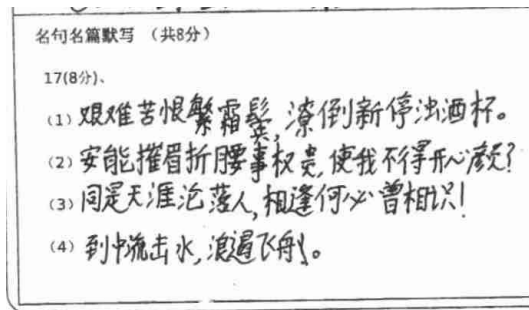 名句名篇默写 （共8分）
17(8分)、
(1) 艰难苦恨繁霜鬓,潦倒新停浊酒杯。
(2) 安能摧眉折腰事权贵,使我不得开心颜?
(3) 同是天涯沦落人,相逢何必曾相识!
(4) 到中流击水,浪遏飞舟。